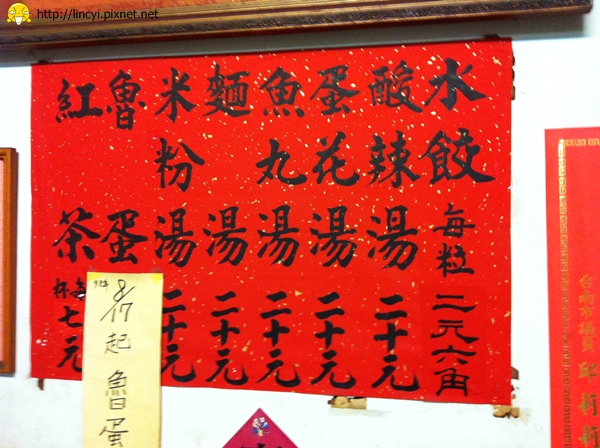 http://lincyi.pixnet.net
水餃每粒二元六角
酸辣湯二十元
蛋花湯二十元
魚丸湯二十元
麵湯二十元
米粉湯二十元
魯蛋
紅茶每杯七元
8/17起魯蛋
台南市議員